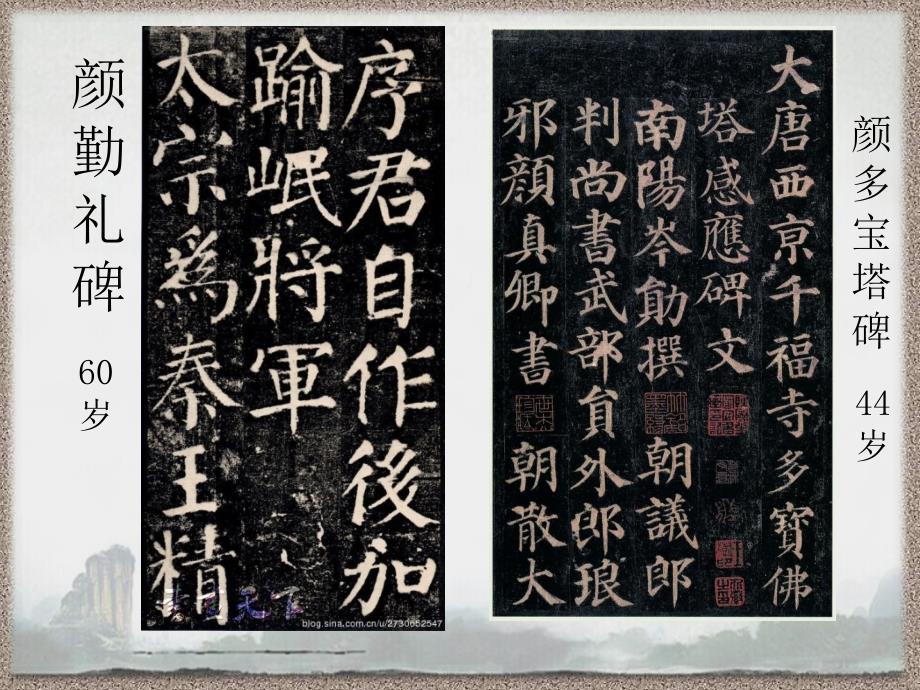 颜勤礼碑
60
岁
序君自作後加
踰岷將軍
太宗爲秦王精
天下
blog.sina.com.cn/u/2730652547
大唐西京千福寺多寶佛
塔感應碑文
南陽岑勛撰 朝議郎
判尚書武部員外郎琅
邪顔真卿書 朝散大
颜多宝塔碑
44
岁